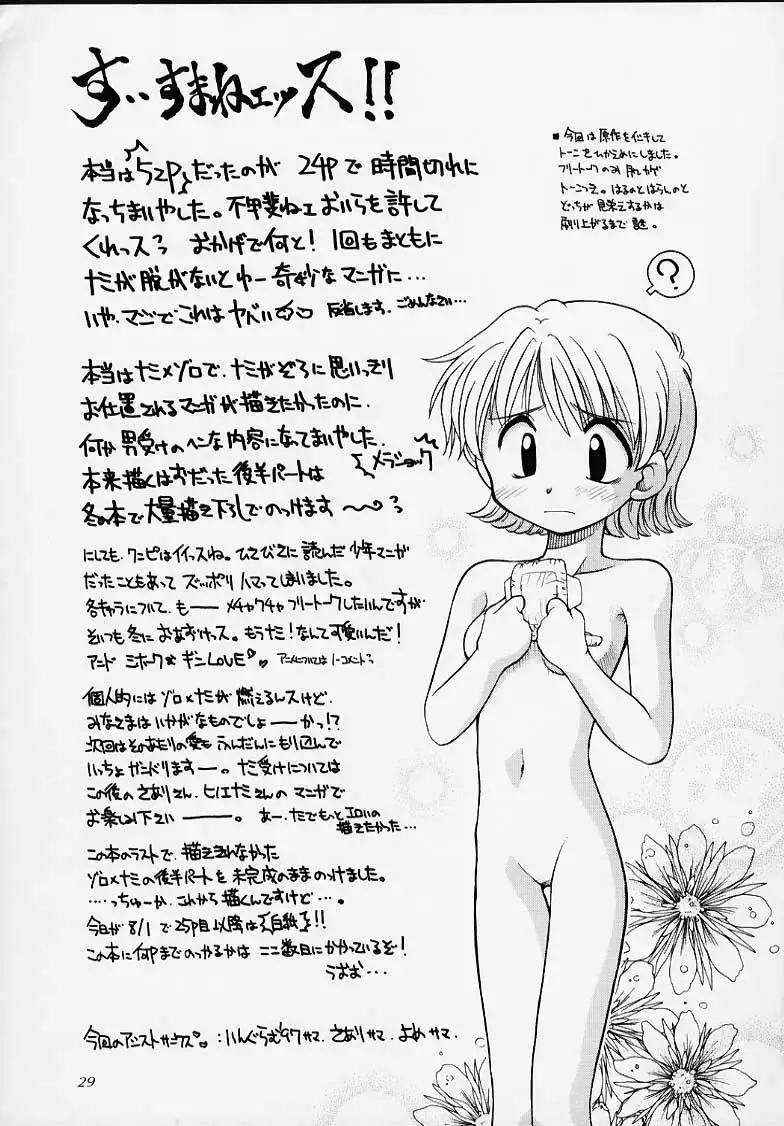 すいすまねェッス!!
本当は52Pだったのが 24Pで時間切れに
なっちまいやした。不甲斐ねェおいらを許して
くれっス おかげで何と! 1回もまともに
ナミが脱がないとゆー奇妙なマンガに…
いや、マジでこれはヤバい 反省します。ごめんなさい…
本当はナミ×ゾロで、ナミがぞろに思いっきり
お仕置されるマンガが描きたかったのに、
何か男受けのヘンな内容になってまいやした。
メラショック
本来描くはずだった後半パートは
冬の本で大量描き下しでのっけます〜
にしても、ワンピはイイっスね。ひさびさに読んだ少年マンガ
だったこともあって ズッポリハマってしまいました。
各キャラについて、もーー メチャクチャフリートークしたいんですが
そいつも冬におあずけっス。もうナミ!なんて可愛いんだ!
アーンド ミホーク☆ギンLOVE♡ アニメについてはノーコメント
個人的にはゾロ×ナミが燃えるんスけど、
みなさまはいかがなものでしょーーかっ!?
次回はそのあたりの愛もふんだんにもり込んで
いっちょガンバりますー。ナミ受けについては
この後のさありさん、ヒエナミさんのマンガで
お楽しみ下さいーー。あー、でもっとエロいの
描きたかった…
この本のラストで、描ききれなかった
ゾロ×ナミの後半パートを未完成のままのっけました。
……っちゅーか、これから描くんですけど…。
今日が8/1で25P目以降は【白紙】!!
この本に何Pまでのっかるかはここ数日にかかっているぞ!
うおお…
今回のアシストサンクス♡:いんぐらむ サマ、さありサマ、よめサマ、
29
■今回は原作を イキして
トーンをひかえめにしました。
フリートークのみ
トーンつき。はるのとはらんのと
どっちが見栄えするかは
刷り上がるまで謎。
?